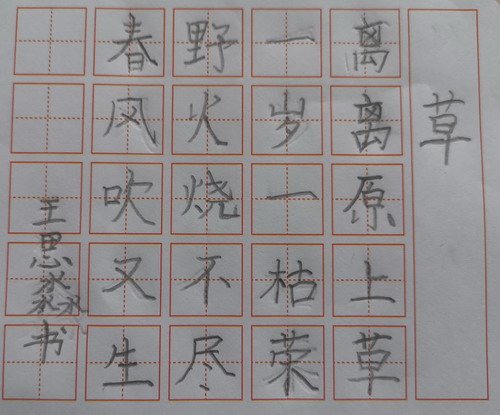 草
离离原上草
一岁一枯荣
野火烧不尽
春风吹又生
王思淼书